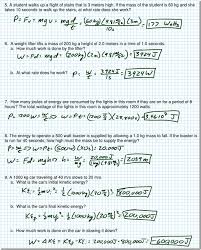 5. A student walks up a flight of stairs that is 3 meters high. If the mass of the student is 60 kg and she
takes 10 seconds to walk up the stairs, at what rate does she work?
P = Fv = mgv = mgd/t = (60kg)(9.81)(3m)/10s = 177 Watts
6. A weight lifter lifts a mass of 200 kg a height of 2.0 meters in a time of 1.0 seconds.
a. How much work does he do?
W = Fd = mgd = (200kg)(9.81)(2.0m) = 3924 J
b. At what rate does he work?
P = W/t = 3924J/1s = 3924 W
7. How many joules of energy are consumed by the lights in this room if they are on for a period of 8
hours? The total wattage of the lights in this room is approximately 1200 watts.
8. The energy to operate a 500 watt toaster is supplied by allowing a 1.0 kg mass to fall. If the toaster is
to run for 40 seconds, how high must the mass be to supply the energy?
W = Pt = (500W)(40s) = 20,000J
9. A 1000 kg car traveling at 40 m/s slows to 20 m/s.
a. What is the car's initial kinetic energy?
= 800,000J
b. What is the car's final kinetic energy?
= 200,000J
c. How much work is done in slowing it down?
W = ΔKE = KE₂ - KE₁ = 200,000J - 800,000J = -600,000J